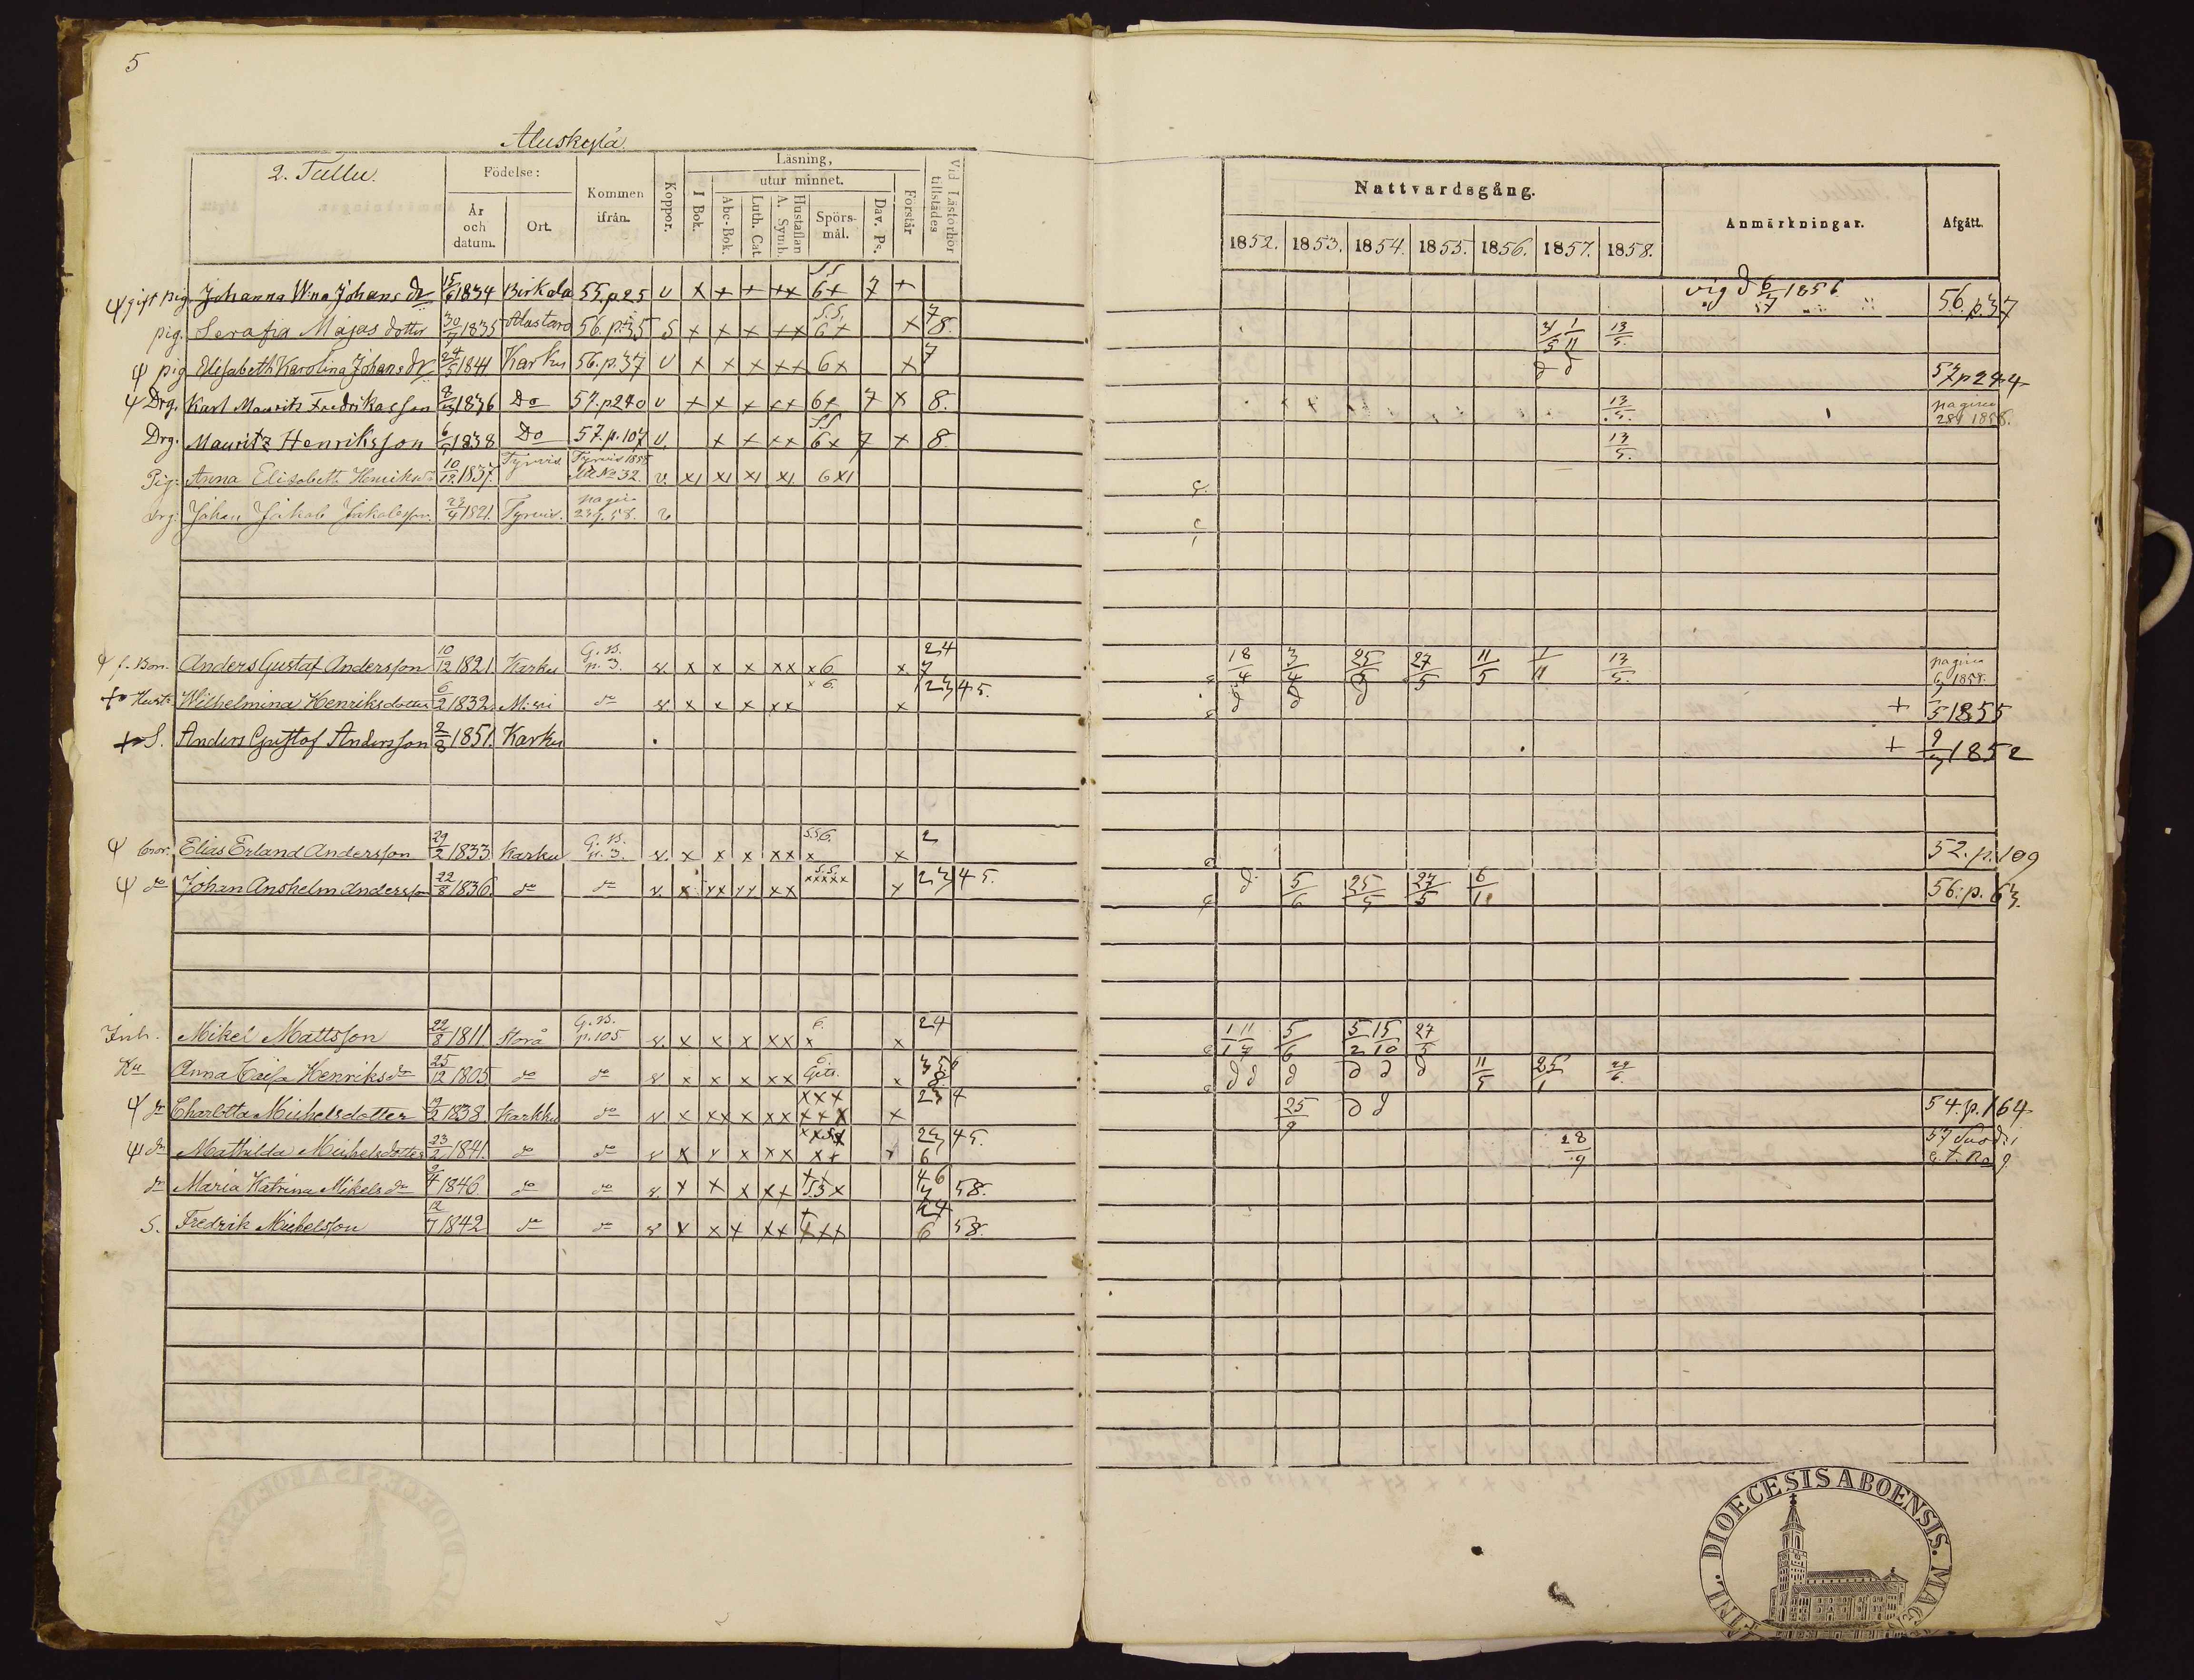 5
Aluskylä
2. Tullu.
Födelse:
År och datum.
Ort.
Kommen ifrån.
Koppor.
Läsning,
I Bok.
utur minnet.
Abc-Bok.
Luth. Cat.
Hustaflan A. Symb.
Spörs-mål.
Dav. Ps.
Förstår
Vid Läsförhör tillstädes
Nattvardsgång.
1852. 1853. 1854. 1855. 1856. 1857. 1858.
Anmärkningar.
Afgått.
gift pig. Johanna W:na Johans dr 15/6 1834 Birkala 55, p 25 v x + + ++ 55 6+ 7 + vig d 6/7 1856 56. p. 37
pig. Serafia Majas dotter 30/7 1835 Alastaro 56. p. 35 S x x x xx 6+ x 7 8. 1/11 13/5.
pig Elisabeth Karolina Johans dr 24/5 1841. Karku 56. p. 37 v x x x xx 6x x 7 57 p 244
Drg. Karl Mauritz Fredriksson 1836 Do 57. p 240 v x x x xx 6x 7 x 8. 13/5. pagina 284 1858.
Drg. Mauritz Henriksson 1838 Do 57. p. 107 v. x x xx 6x 7 x 8. 13/5.
Pig: Anna Elisabeth Henriksd 10/12 1837. Tyrvis Tyrvis 1858 No 32. v.
drg: Johan Jakob Jakobsson 23/4 1821. Tyrvis. pagina 239. 58. v
f. Bon. Anders Gustaf Andersson 10/12 1821. Karku G. B. p. 3. v. x x x xx x 6 x. 24 7 18/4 3/4 25/5 27/5 11/5 1/11 13/5. pagina 6, 1858.
Hust: Wilhelmina Henriksdotter 6/2 1832. do v. x x x xx x 6. x 12345. d d d + 1855
S. Anders Gustaf Andersson 2/8 1851. Karku + 9/7 1852
bror. Elias Erland Andersson 29/2 1833 Karku G. B. p. 3. v. x x x xx 556. x x 2 52. p. 109
do Johan Anshelm Andersson 22/8 1836. do do v. x xx xx xx 5.5. xxxxx x 2345. d 5/6 25/5 27/5 6/11 56. p. 63.
Inh. Mikel Mattsson 22/8 1811. Storå G. B. p. 105 v. x x x xx 6. x x 24 11/7 5/6 5/2 15/10 27/5
Hu Anna Caisa Henriks dr 25/12 1805 do do v x x x xx x 8. d d d d d d 11/5 25/1
dr Charlotta Michelsdotter 1838 Karkku do v. x xx x xx xxx xxx x 234 25/9 d d 54. p. 164
dr Mathilda Michelsdotter 23/2 1841. do do v x x x xx xx x 2345. 6 28/9 57
dr Maria Katrina Mikels dr 1846 do do v. x x x xx 53x 46 7 58.
S. Fredrik Michelsson 12/7 1842 do do v x x x xx xxx 24 6 58.
DIOECESIS ABOENSIS. MAG
FINL.